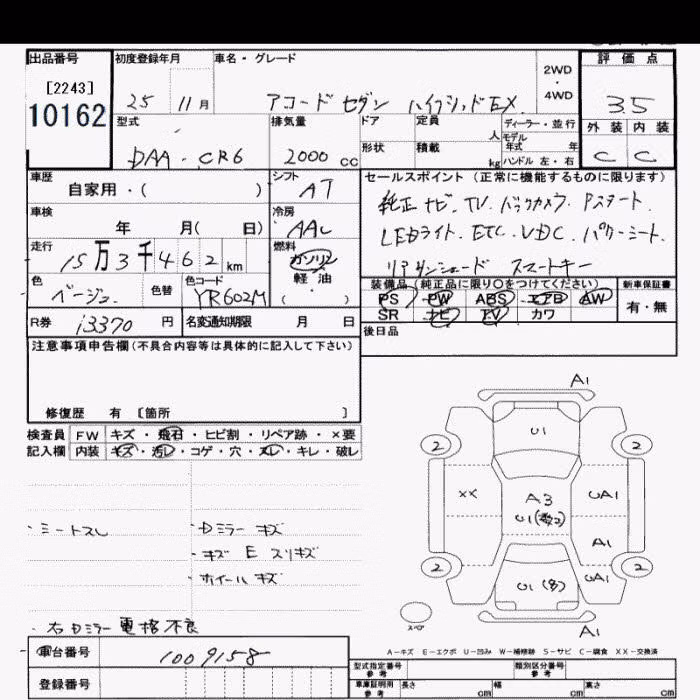 出品番号 初度登録年月 車名・グレード 2WD ・ 4WD 評価点
[2243]
10162
25 11月 アコード セダン ハイブリッドEX 3.5
型式 排気量 ドア 定員 人 ディーラー・並行 外装 内装
モデル年式 年
DAA-CR6 2000cc 形状 積載 kg ハンドル 左・右 C C
車歴 シフト セールスポイント(正常に機能するものに限ります)
自家用・( ) AT
純正ナビ.TV.バックカメラ.Pスタート.
車検 冷房
年 月( 日) AAC
LEDライト.ETC.VDC.パワーシート.
走行 燃料
15万3千462km ガソリン
軽油
( )
リアサンシェード スマートキー
色 色替 色コード
ベージュ YR602M
装備品(純正品に限り○をつけてください) 新車保証書
PS PW ABS エアB AW 有・無
SR ナビ TV カワ
R券 13370円 名変通知期限 月 日
後日品
注意事項申告欄(不具合内容等は具体的に記入して下さい)
修復歴 有 [箇所 ]
検査員 FW キズ・飛石・ヒビ割・リペア跡・×要
記入欄 内装 キズ・汚レ・コゲ・穴・スレ・キレ・破レ
A1
U1
2 2
XX A3 UA1
U1(数コ)
A1
2 2
U1(多) UA1
スペア A1
・シートスレ ・Dミラー キズ
・キズ E スリキズ
・ホイールキズ
・右Dミラー電格不良
A-キズ E-エクボ U-凹み W-補修跡 S-サビ C-腐食 XX-交換済
車台番号 1009158
型式指定番号 参考 類別区分番号 参考
登録番号 車庫証明用 参考 長さ cm 幅 cm 高さ cm